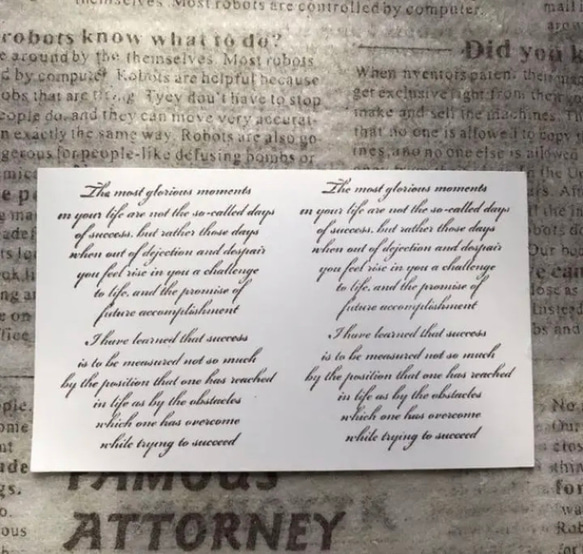 themselves. Most robots are controlled by computer.
robots know what to do?
e around by the themselves. Most robots
d by computer. Robots are helpful because
obs that are Tyey don't have to stop
eople do, and they can move very accurat-
n exactly the same way. Robots are also go
gerous for people-like defusing bombs or
Did you k
When nventors paten, their
get exclusive right from the
make and sell the machines. Th
that no one is allowed to copy t
ines, and no one else is allowed
The most glorious moments
in your life are not the so-called days
of success, but rather those days
when out of dejection and despair
you feel rise in you a challenge
to life, and the promise of
future accomplishment
I have learned that success
is to be measured not so much
by the position that one has reached
in life as by the obstacles
which one has overcome
while trying to succeed
The most glorious moments
in your life are not the so-called days
of success, but rather those days
when out of dejection and despair
you feel rise in you a challenge
to life, and the promise of
future accomplishment
I have learned that success
is to be measured not so much
by the position that one has reached
in life as by the obstacles
which one has overcome
while trying to succeed
FAMOUS
ATTORNEY